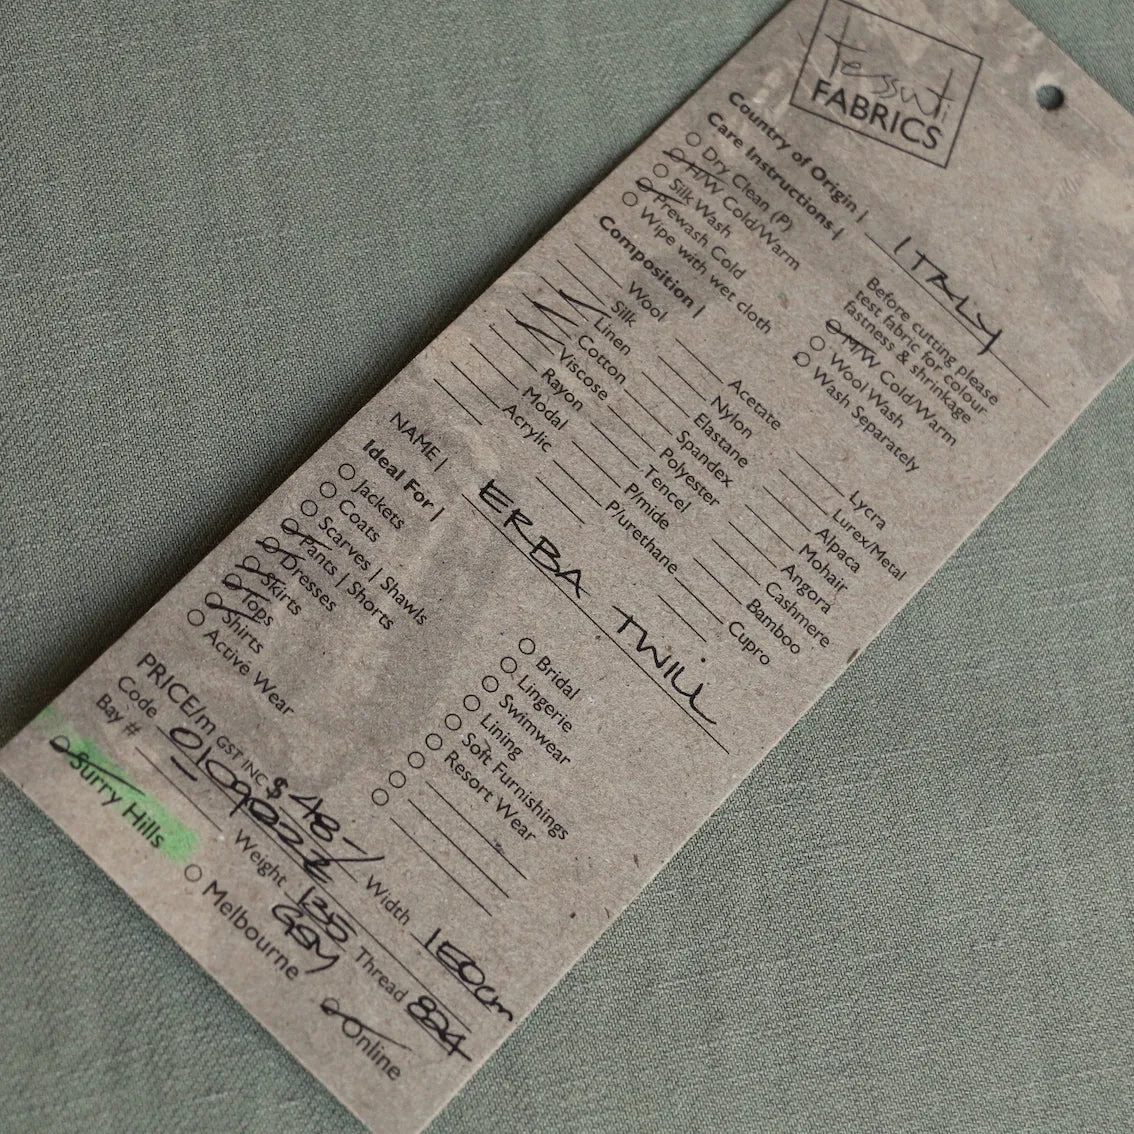 tessuti
FABRICS
Country of Origin | ITALY
Care Instructions |
Dry Clean (P)
H/W Cold/Warm
Silk Wash
Prewash Cold
Wipe with wet cloth
Before cutting please
test fabric for colour
fastness & shrinkage
M/W Cold/Warm
Wool Wash
Wash Separately
Composition |
Wool
Silk
Linen
Cotton
Viscose
Rayon
Modal
Acrylic
Acetate
Nylon
Elastane
Spandex
Polyester
Tencel
P/mide
P/urethane
Lycra
Lurex/Metal
Alpaca
Mohair
Angora
Cashmere
Bamboo
Cupro
NAME | ERBA TWILL
Ideal For |
Jackets
Coats
Scarves | Shawls
Pants | Shorts
Dresses
Skirts
Tops
Shirts
Active Wear
Bridal
Lingerie
Swimwear
Lining
Soft Furnishings
Resort Wear
PRICE/m GST INC $ 48-/ Width 150cm
Code
Bay # Weight 135 GSM Thread 824
Surry Hills
Melbourne
Online